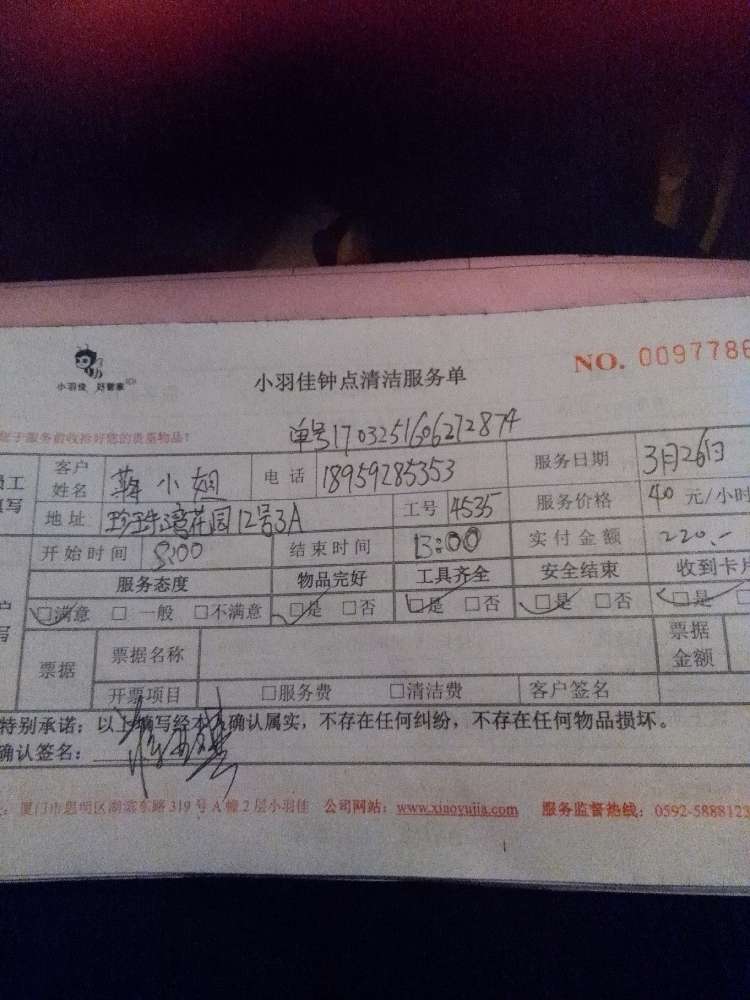 小羽佳 好管家
小羽佳钟点清洁服务单
NO. 0097786
您于服务前收拾好您的贵重物品!
单号1703251606272874
员工 填写
客户姓名 小姐 电话 18959285353 服务日期 3月26日
地址 珍珠湾花园12号3A 工号 4535 服务价格 40 元/小时
开始时间 9:00 结束时间 13:00 实付金额 220.-
服务态度 物品完好 工具齐全 安全结束 收到卡片
☑满意 □一般 □不满意 ☑是 □否 ☑是 □否 ☑是 □否 ☑是
票据 票据名称 票据金额
开票项目 □服务费 □清洁费 客户签名
特别承诺：以上填写经本人确认属实，不存在任何纠纷，不存在任何物品损坏。
确认签名：
厦门市思明区湖滨东路319号A幢2层小羽佳 公司网站：www.xiaoyujia.com 服务监督热线：0592-5888123